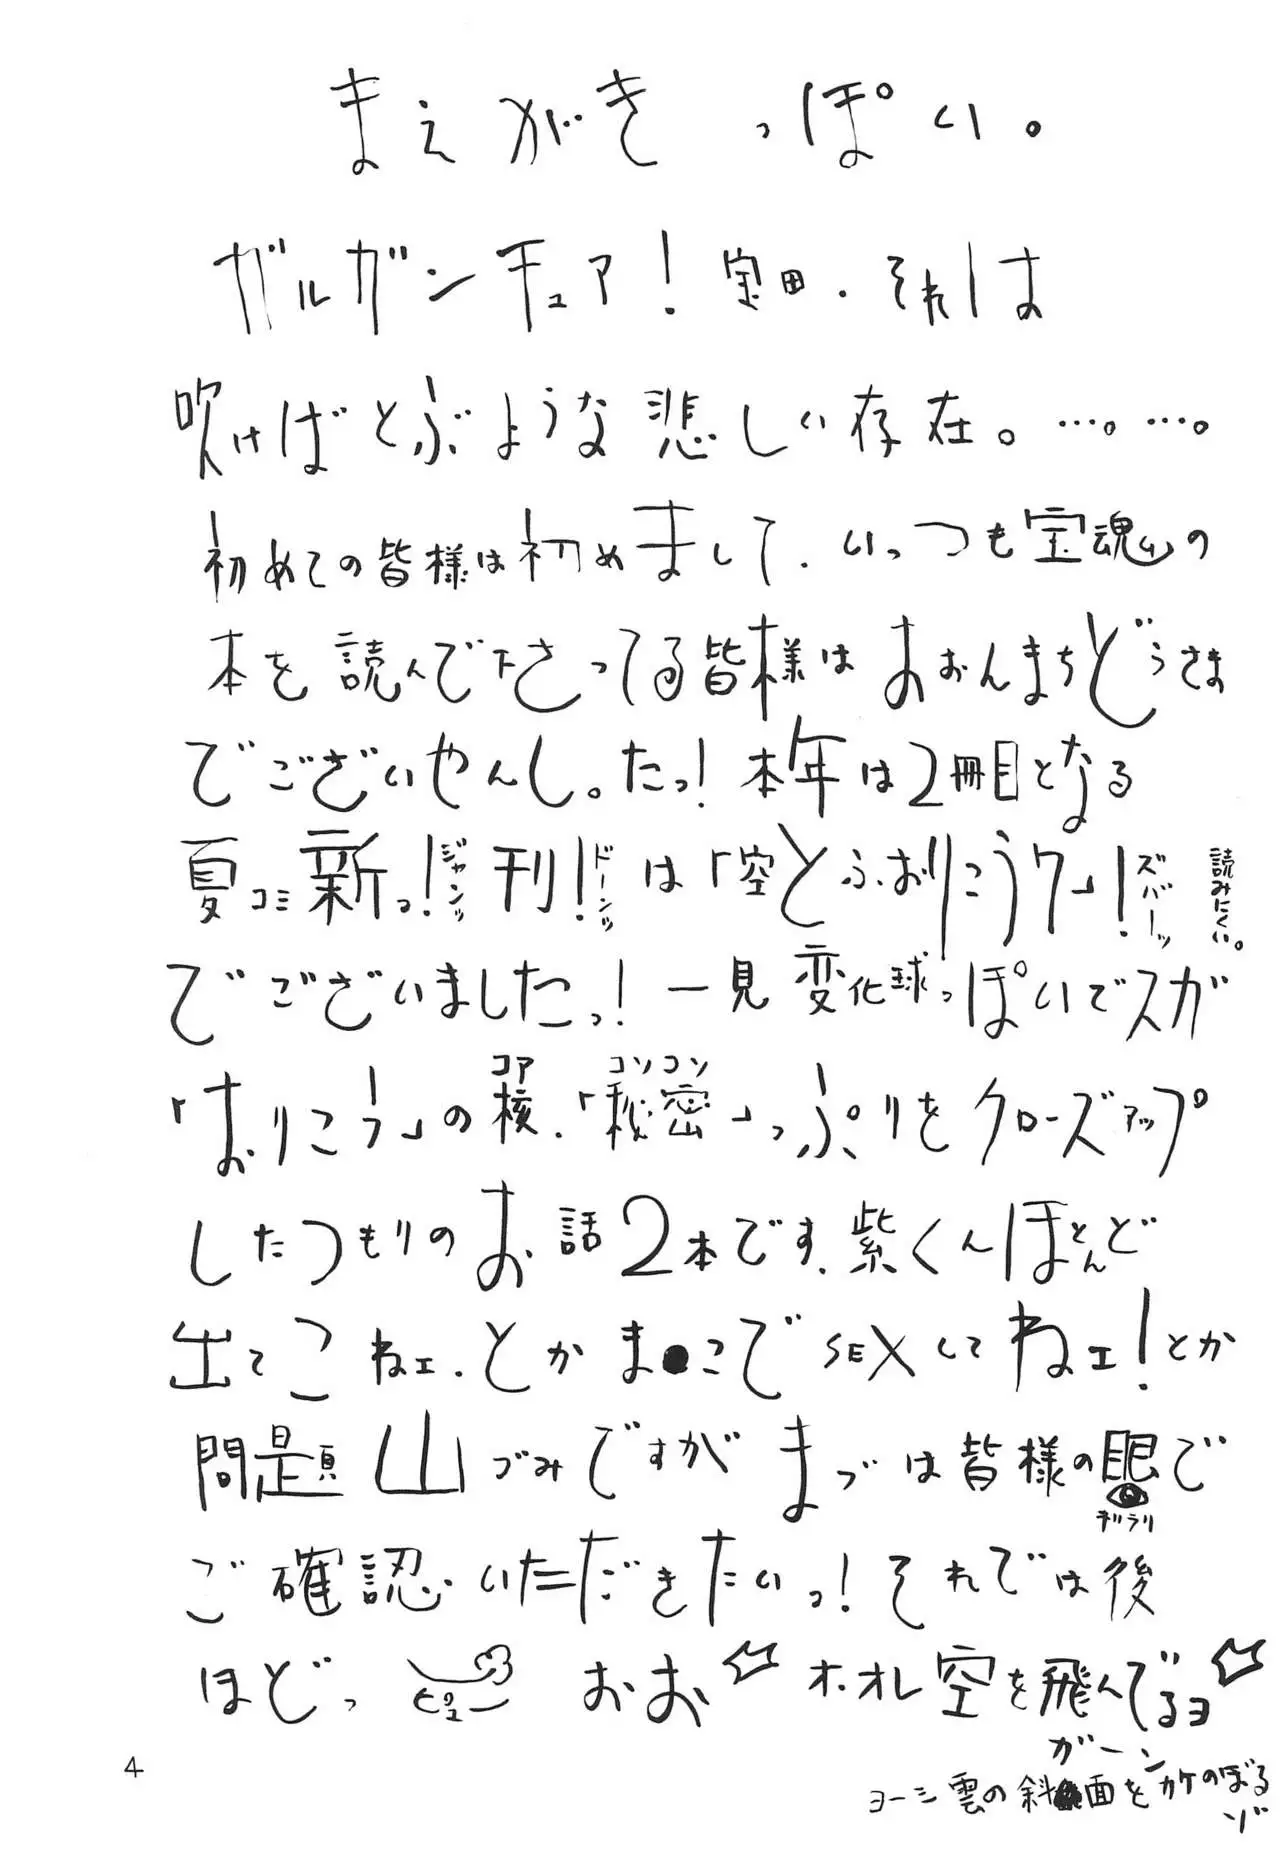 まえがきっぽい。
ガルガンチュア!宝田.それは
吹けばとぶような悲しい存在。…。…。
初めての皆様は初めまして.いっつも宝魂の
本を読んで下さってる皆様はおおんまちどうさま
でございやんし。たっ!本年は2冊目となる
夏コミ新っ!ジャンッ刊!ドーンッは「空とふおりこうワ」!ズバーッ
読みにくい。
でございましたっ!一見変化球っぽいでスガ
コア コソコソ
「おりこう」の核.「秘密」っぷりをクローズアップ
したつもりのお話2本です.紫くんほとんど
出てこねェ.とかま●こでSEXしてねェ!とか
問題山づみですがまづは皆様の眼で
ギラリ
ご確認いただきたいっ!それでは後
ほどっ ピュー おお ホ.オレ空を飛んでるョ
ガーン
ヨーシ雲の斜面をカケのぼる
ゾ
4